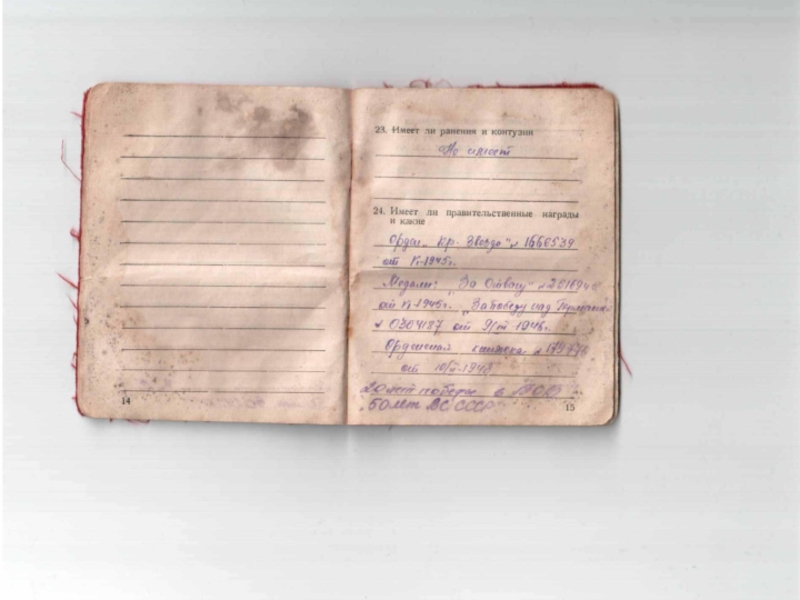 23. Имеет ли ранения и контузии
Не имеет
24. Имеет ли правительственные награды
и какие
Орден „Кр. Звезда" № 1666539
от V-1945г.
Медали: „За Отвагу"
от V-1945г. „За победу над Германией"
№ 0304187 от
Орденская книжка
от
20 лет победы в ВОВ
50 лет ВС СССР
14
15